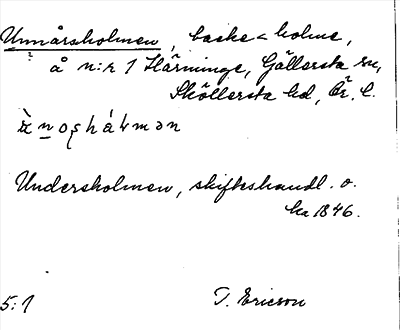 Unnårsholmen, backe < holme,
å n:r 1 Härminge, Gällersta sn,
Sköllersta hd, Ör. l.
Undersholmen, skifteshandl. o.
ka 1846.
5:1 T. Ericson